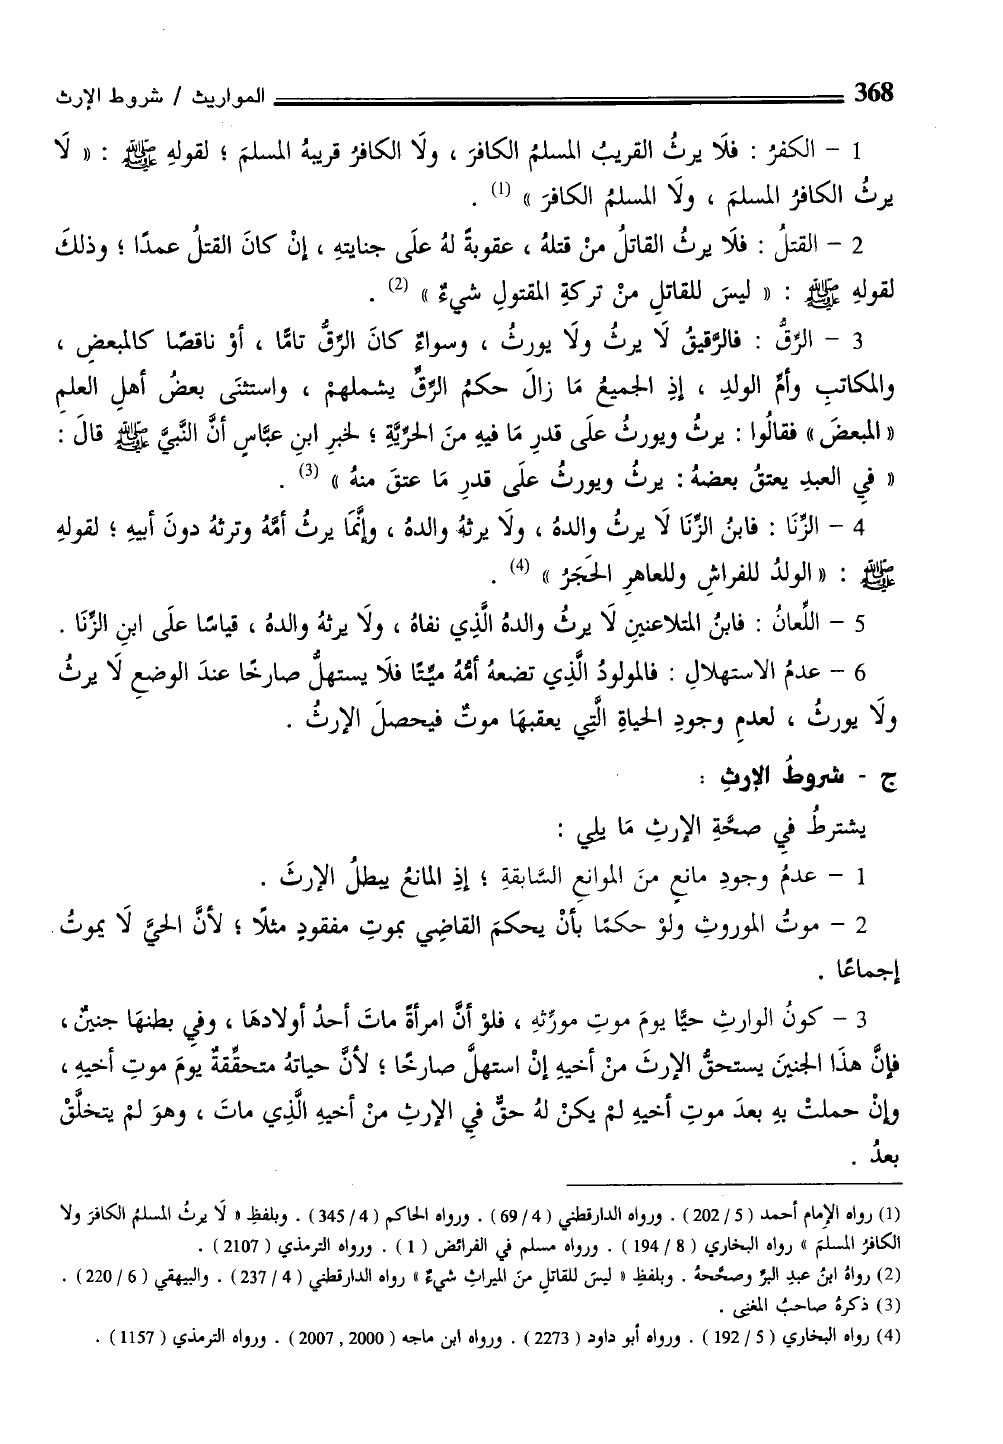 368 المواريث / شروط الإرث
1 – الكفرُ : فلَا يرثُ القريبُ المسلمُ الكافرَ ، ولَا الكافرُ قريبهُ المسلمَ ؛ لقولهِ ﷺ : « لَا
يرثُ الكافرُ المسلمَ ، ولَا المسلمُ الكافرَ » (1) .
2 – القتلُ : فلَا يرثُ القاتلُ منْ قتلهُ ، عقوبةً لهُ علَى جنايتهِ ، إنْ كانَ القتلُ عمدًا ؛ وذلكَ
لقولهِ ﷺ : « ليسَ للقاتلِ منْ تركةِ المقتولِ شيءٌ » (2) .
3 – الرِّقُّ : فالرَّقيقُ لَا يرثُ ولَا يورثُ ، وسواءٌ كانَ الرِّقُّ تامًّا ، أوْ ناقصًا كالمبعضِ ،
والمكاتبِ وأمِّ الولدِ ، إذِ الجميعُ مَا زالَ حكمُ الرِّقِّ يشملهمْ ، واستثنَى بعضُ أهلِ العلمِ
« المبعضَ » فقالُوا : يرثُ ويورثُ علَى قدرِ مَا فيهِ منَ الحرِّيَّةِ ؛ لخبرِ ابنِ عبَّاسٍ أنَّ النَّبيَّ ﷺ قالَ :
« في العبدِ يعتقُ بعضهُ : يرثُ ويورثُ علَى قدرِ مَا عتقَ منهُ » (3) .
4 – الزِّنَا : فابنُ الزِّنَا لَا يرثُ والدهُ ، ولَا يرثهُ والدهُ ، وإنَّمَا يرثُ أمَّهُ وترثهُ دونَ أبيهِ ؛ لقولهِ
ﷺ : « الولدُ للفراشِ وللعاهرِ الحَجَرُ » (4) .
5 – اللِّعانُ : فابنُ المتلاعنينِ لَا يرثُ والدهُ الَّذِي نفاهُ ، ولَا يرثهُ والدهُ ، قياسًا علَى ابنِ الزِّنَا .
6 – عدمُ الاستهلالِ : فالمولودُ الَّذِي تضعهُ أمُّهُ ميِّتًا فلَا يستهلُّ صارخًا عندَ الوضعِ لَا يرثُ
ولَا يورثُ ، لعدمِ وجودِ الحياةِ الَّتِي يعقبهَا موتٌ فيحصلَ الإرثُ .
ج - شروطُ الإرثِ :
يشترطُ في صحَّةِ الإرثِ مَا يلي :
1 – عدمُ وجودِ مانعٍ منَ الموانعِ السَّابقةِ ؛ إذِ المانعُ يبطلُ الإرثَ .
2 – موتُ الموروثِ ولوْ حكمًا بأنْ يحكمَ القاضِي بموتِ مفقودٍ مثلًا ؛ لأنَّ الحيَّ لَا يموتُ
إجماعًا .
3 – كونُ الوارثِ حيًّا يومَ موتِ مورِّثهِ ، فلوْ أنَّ امرأةً ماتَ أحدُ أولادهَا ، وفي بطنهَا جنينٌ ،
فإنَّ هذَا الجنينَ يستحقُّ الإرثَ منْ أخيهِ إنْ استهلَّ صارخًا ؛ لأنَّ حياتهُ متحقِّقةٌ يومَ موتِ أخيهِ ،
وإنْ حملتْ بهِ بعدَ موتِ أخيهِ لمْ يكنْ لهُ حقٌّ في الإرثِ منْ أخيهِ الَّذِي ماتَ ، وهوَ لمْ يتخلَّقْ
بعدُ .
(1) رواه الإمام أحمد ( 5 / 202 ) . ورواه الدارقطني ( 4 / 69 ) . ورواه الحاكم ( 4 / 345 ) . وبلفظِ « لَا يرثُ المسلمُ الكافرَ ولا
الكافرُ المسلمَ » رواه البخاري ( 8 / 194 ) . ورواه مسلم في الفرائض ( 1 ) . ورواه الترمذي ( 2107 ) .
(2) رواهُ ابنُ عبدِ البرِّ وصحَّحهُ . وبلفظِ « ليسَ للقاتلِ منَ الميراثِ شيءٌ » رواه الدارقطني ( 4 / 237 ) . والبيهقي ( 6 / 220 ) .
(3) ذكرهُ صاحبُ المغني .
(4) رواه البخاري ( 5 / 192 ) . ورواه أبو داود ( 2273 ) . ورواه ابن ماجه ( 2000 , 2007 ) . ورواه الترمذي ( 1157 ) .